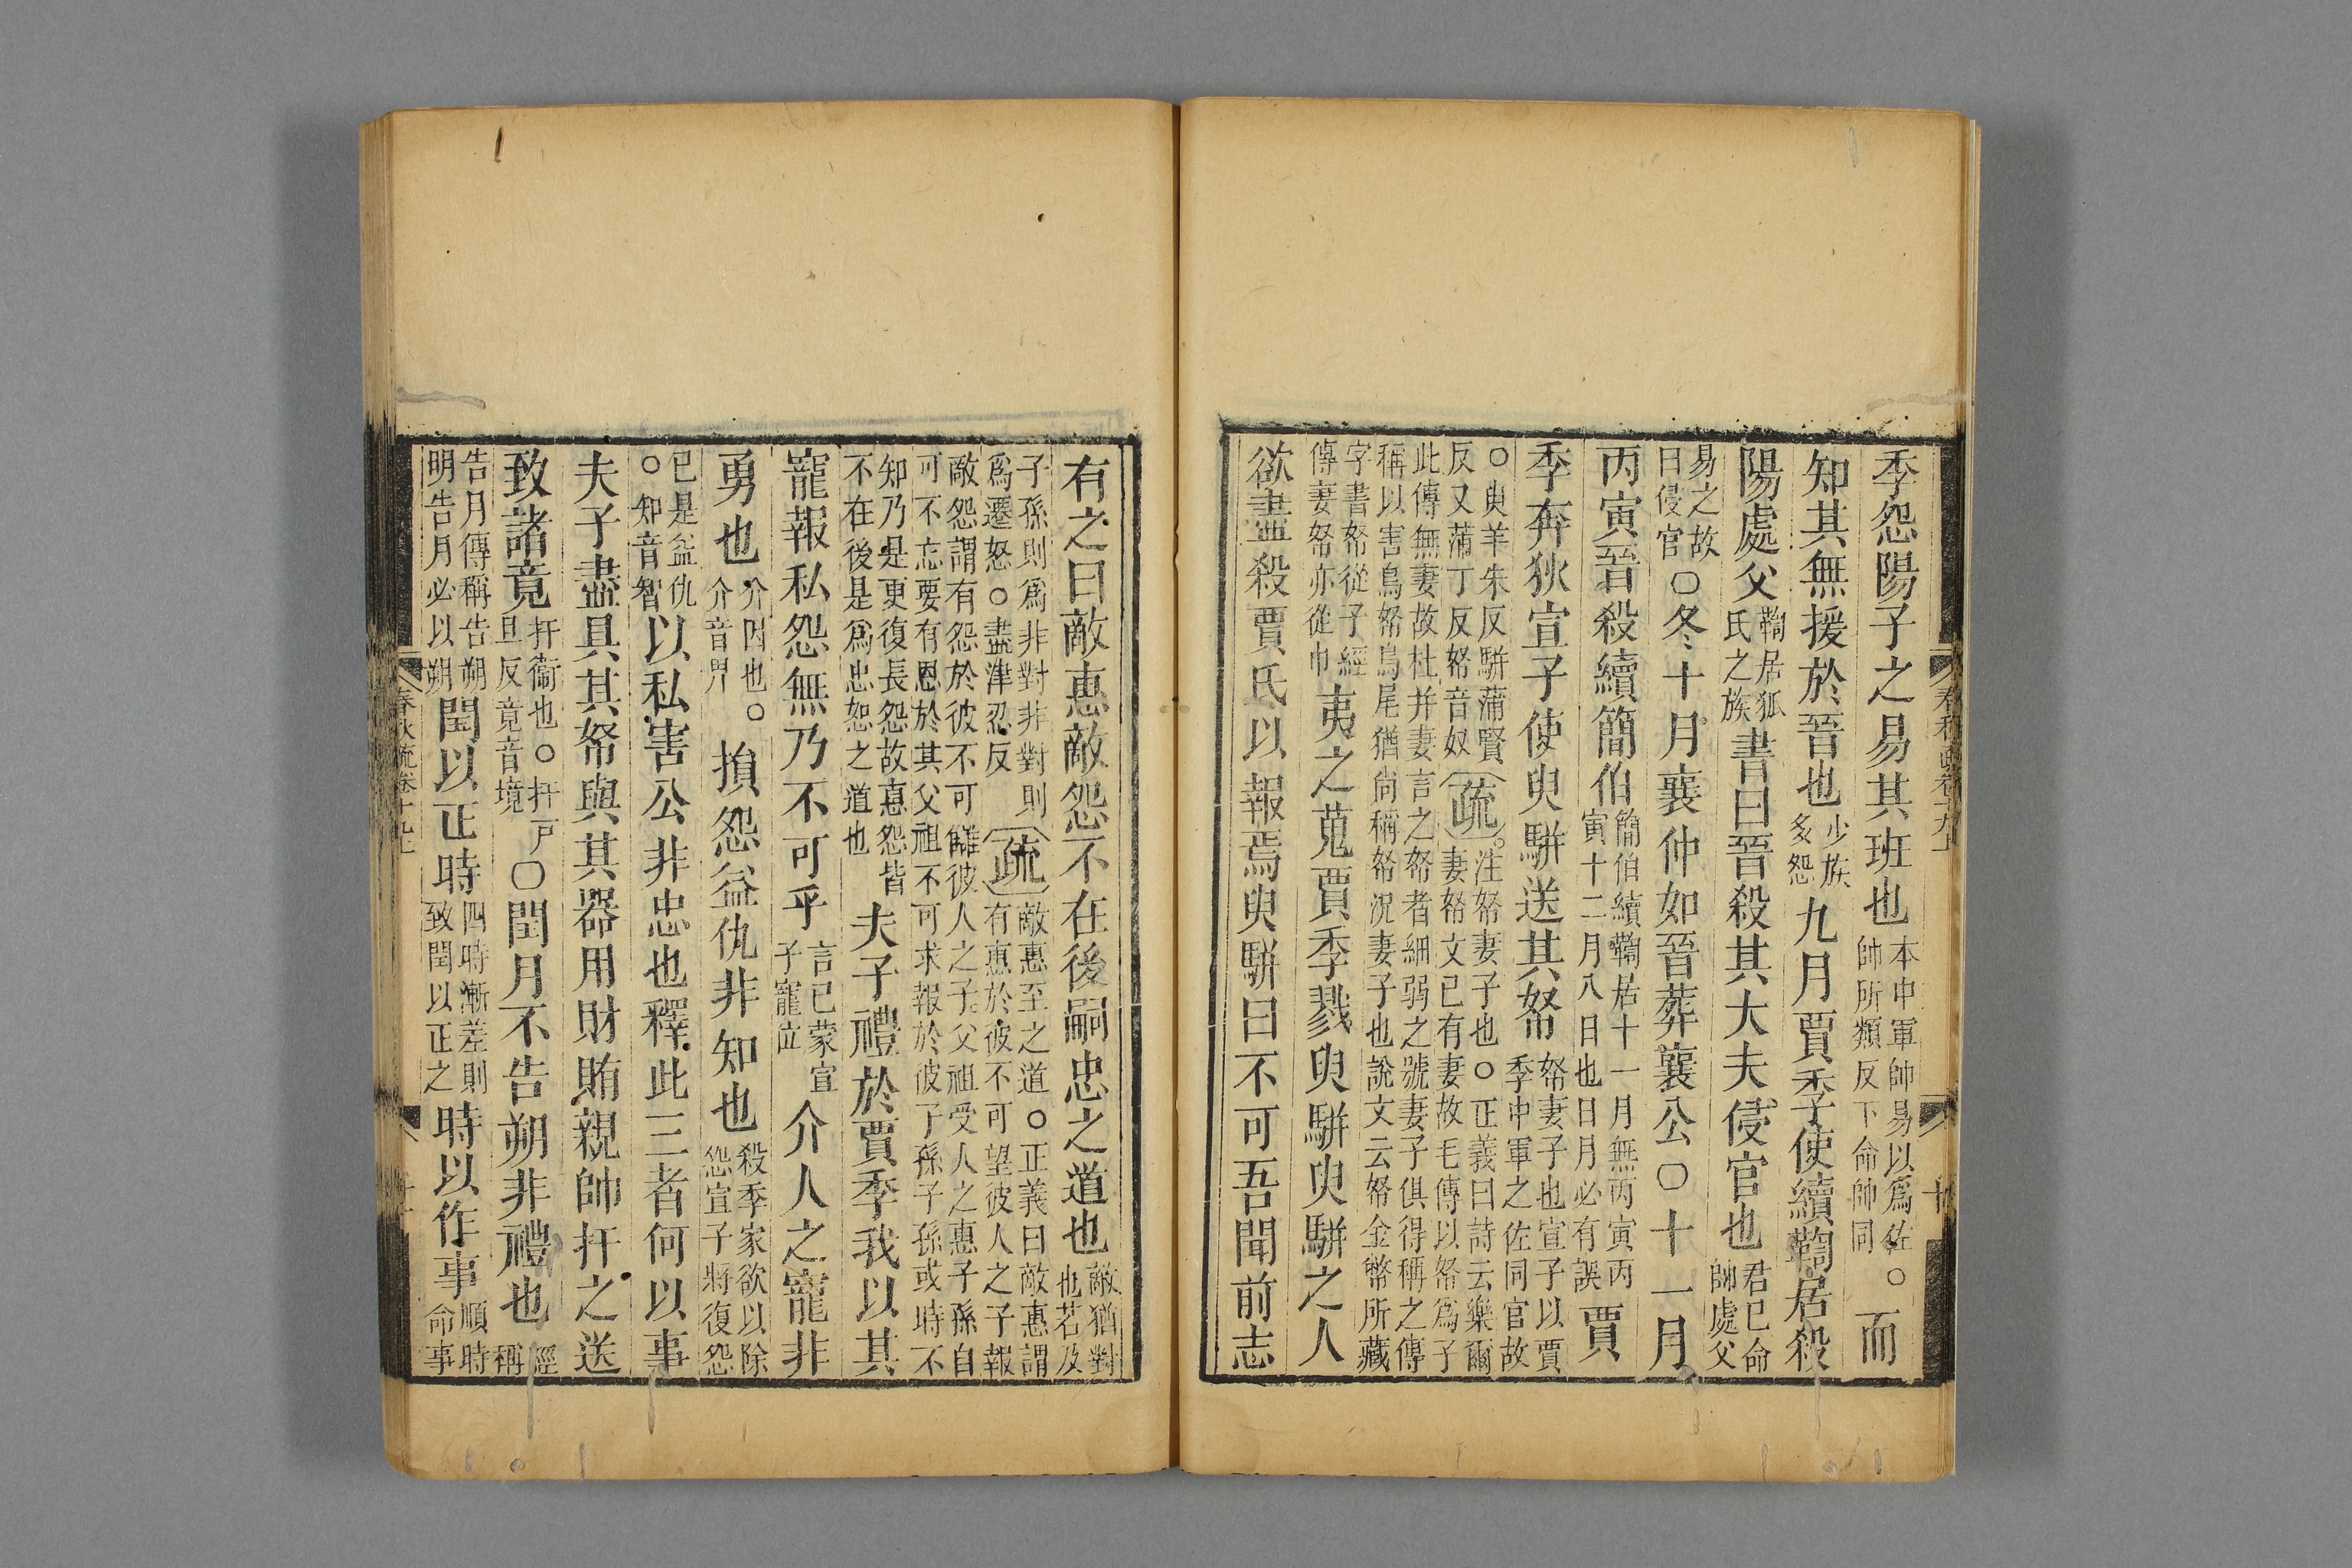 季怨陽子之易其班也本中軍帥易以爲佐○帥所類反下命帥同而
知其無援於晉也少族多怨九月賈季使續鞫居殺
陽處父鞫居狐氏之族書曰晉殺其大夫侵官也君已命帥處父
易之故曰侵官○冬十月襄仲如晉葬襄公○十一月
丙寅晉殺續簡伯簡伯續鞫居十一月無丙寅丙寅十二月八日也日月必有誤賈
季奔狄宣子使臾駢送其帑帑妻子也宣子以賈季中軍之佐同官故
○臾羊朱反駢蒲賢反又蒲丁反帑音奴疏注帑妻子也○正義曰詩云樂爾妻帑文已有妻故毛傳以帑爲子
此傳無妻故杜并妻言之帑者細弱之號妻子俱得稱之傳稱以害鳥帑鳥尾猶尚稱帑況妻子也說文云帑金幣所藏
字書帑從子經傳妻帑亦從巾夷之蒐賈季戮臾駢臾駢之人
欲盡殺賈氏以報焉臾駢曰不可吾聞前志
春秋疏卷十九上
十
有之曰敵惠敵怨不在後嗣忠之道也敵猶對也若及
子孫則爲非對非對則爲遷怒○盡津忍反疏敵惠至之道○正義曰敵惠謂有惠於彼不可望彼人之子報
敵怨謂有怨於彼不可讎彼人之子父祖受人之惠子孫自可不忘要有恩於其父祖不可求報於彼子孫子孫或時不
知乃是更復長怨故惠怨皆不在後是爲忠恕之道也夫子禮於賈季我以其
寵報私怨無乃不可乎言已蒙宣子寵位介人之寵非
勇也介因也○介音界損怨益仇非知也殺季家欲以除怨宣子將復怨
已是益仇○知音智以私害公非忠也釋此三者何以事
夫子盡具其帑與其器用財賄親帥扞之送
致諸竟扞衞也○扞戸旦反竟音境○閏月不告朔非禮也經稱
告月傳稱告朔明告月必以朔閏以正時四時漸差則致閏以正之時以作事順時命事
春秋疏卷十九上